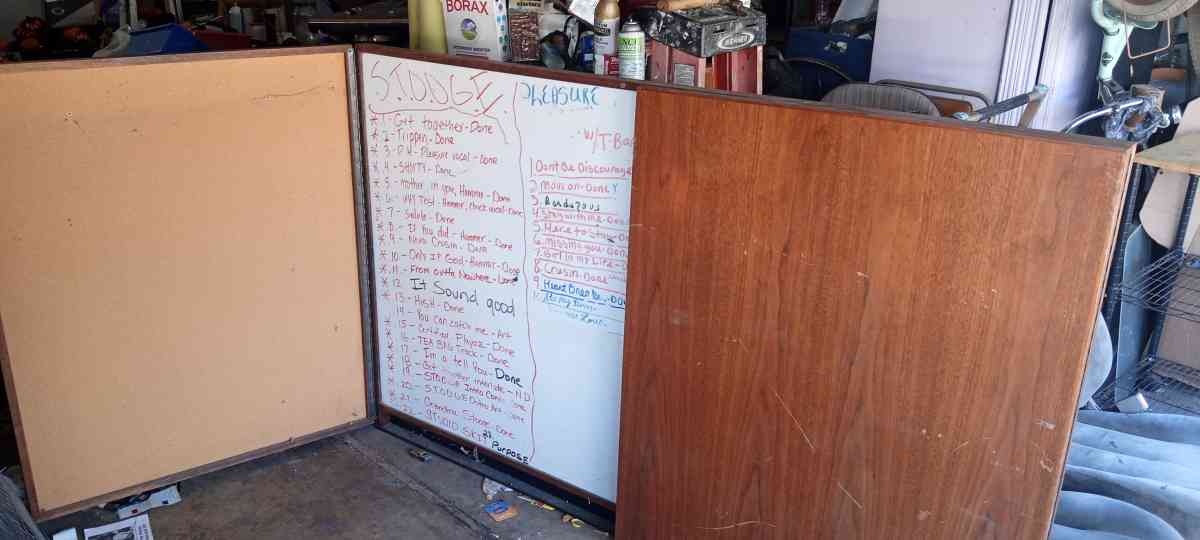 BORAX
S.T.O.D.G.E.
1 - Get together - Done
2 - Trippen - Done
3 - P.H. - Pleasure vocal - Done
4 - SHYTY - Done
5 - Mother in you, Hammer - Done
6 - Hammer, check vocal - Done
7 - Salute - Done
8 - If You did - Hammer - Done
9 - Neva Crusin - Done
10 - Only If Good - Hammer - Done
11 - From outta Nowhere - Done
12 It Sound good
13 - HIGH - Done
14 - You can catch me - Art
15 - Certified Playaz - Done
16 - TEA BAG Track - Done
17 - I'm a tell You - Done
18 - Get another interlude - N.D
19 - Intro - Done
20 - Outro - Done
21 - Grandma - Done
22 - STUDIO SKIT
23. Purpose
PLEASURE
w/T-Ba
1 Dont Be Discourage
2 Move on - Done Y
3. Randazous
4. Stay with me - Don
5. Here to Stay - D
6. Missing you - Don
7. Girl in my Life -
8. Crusin - Done
9. Heart